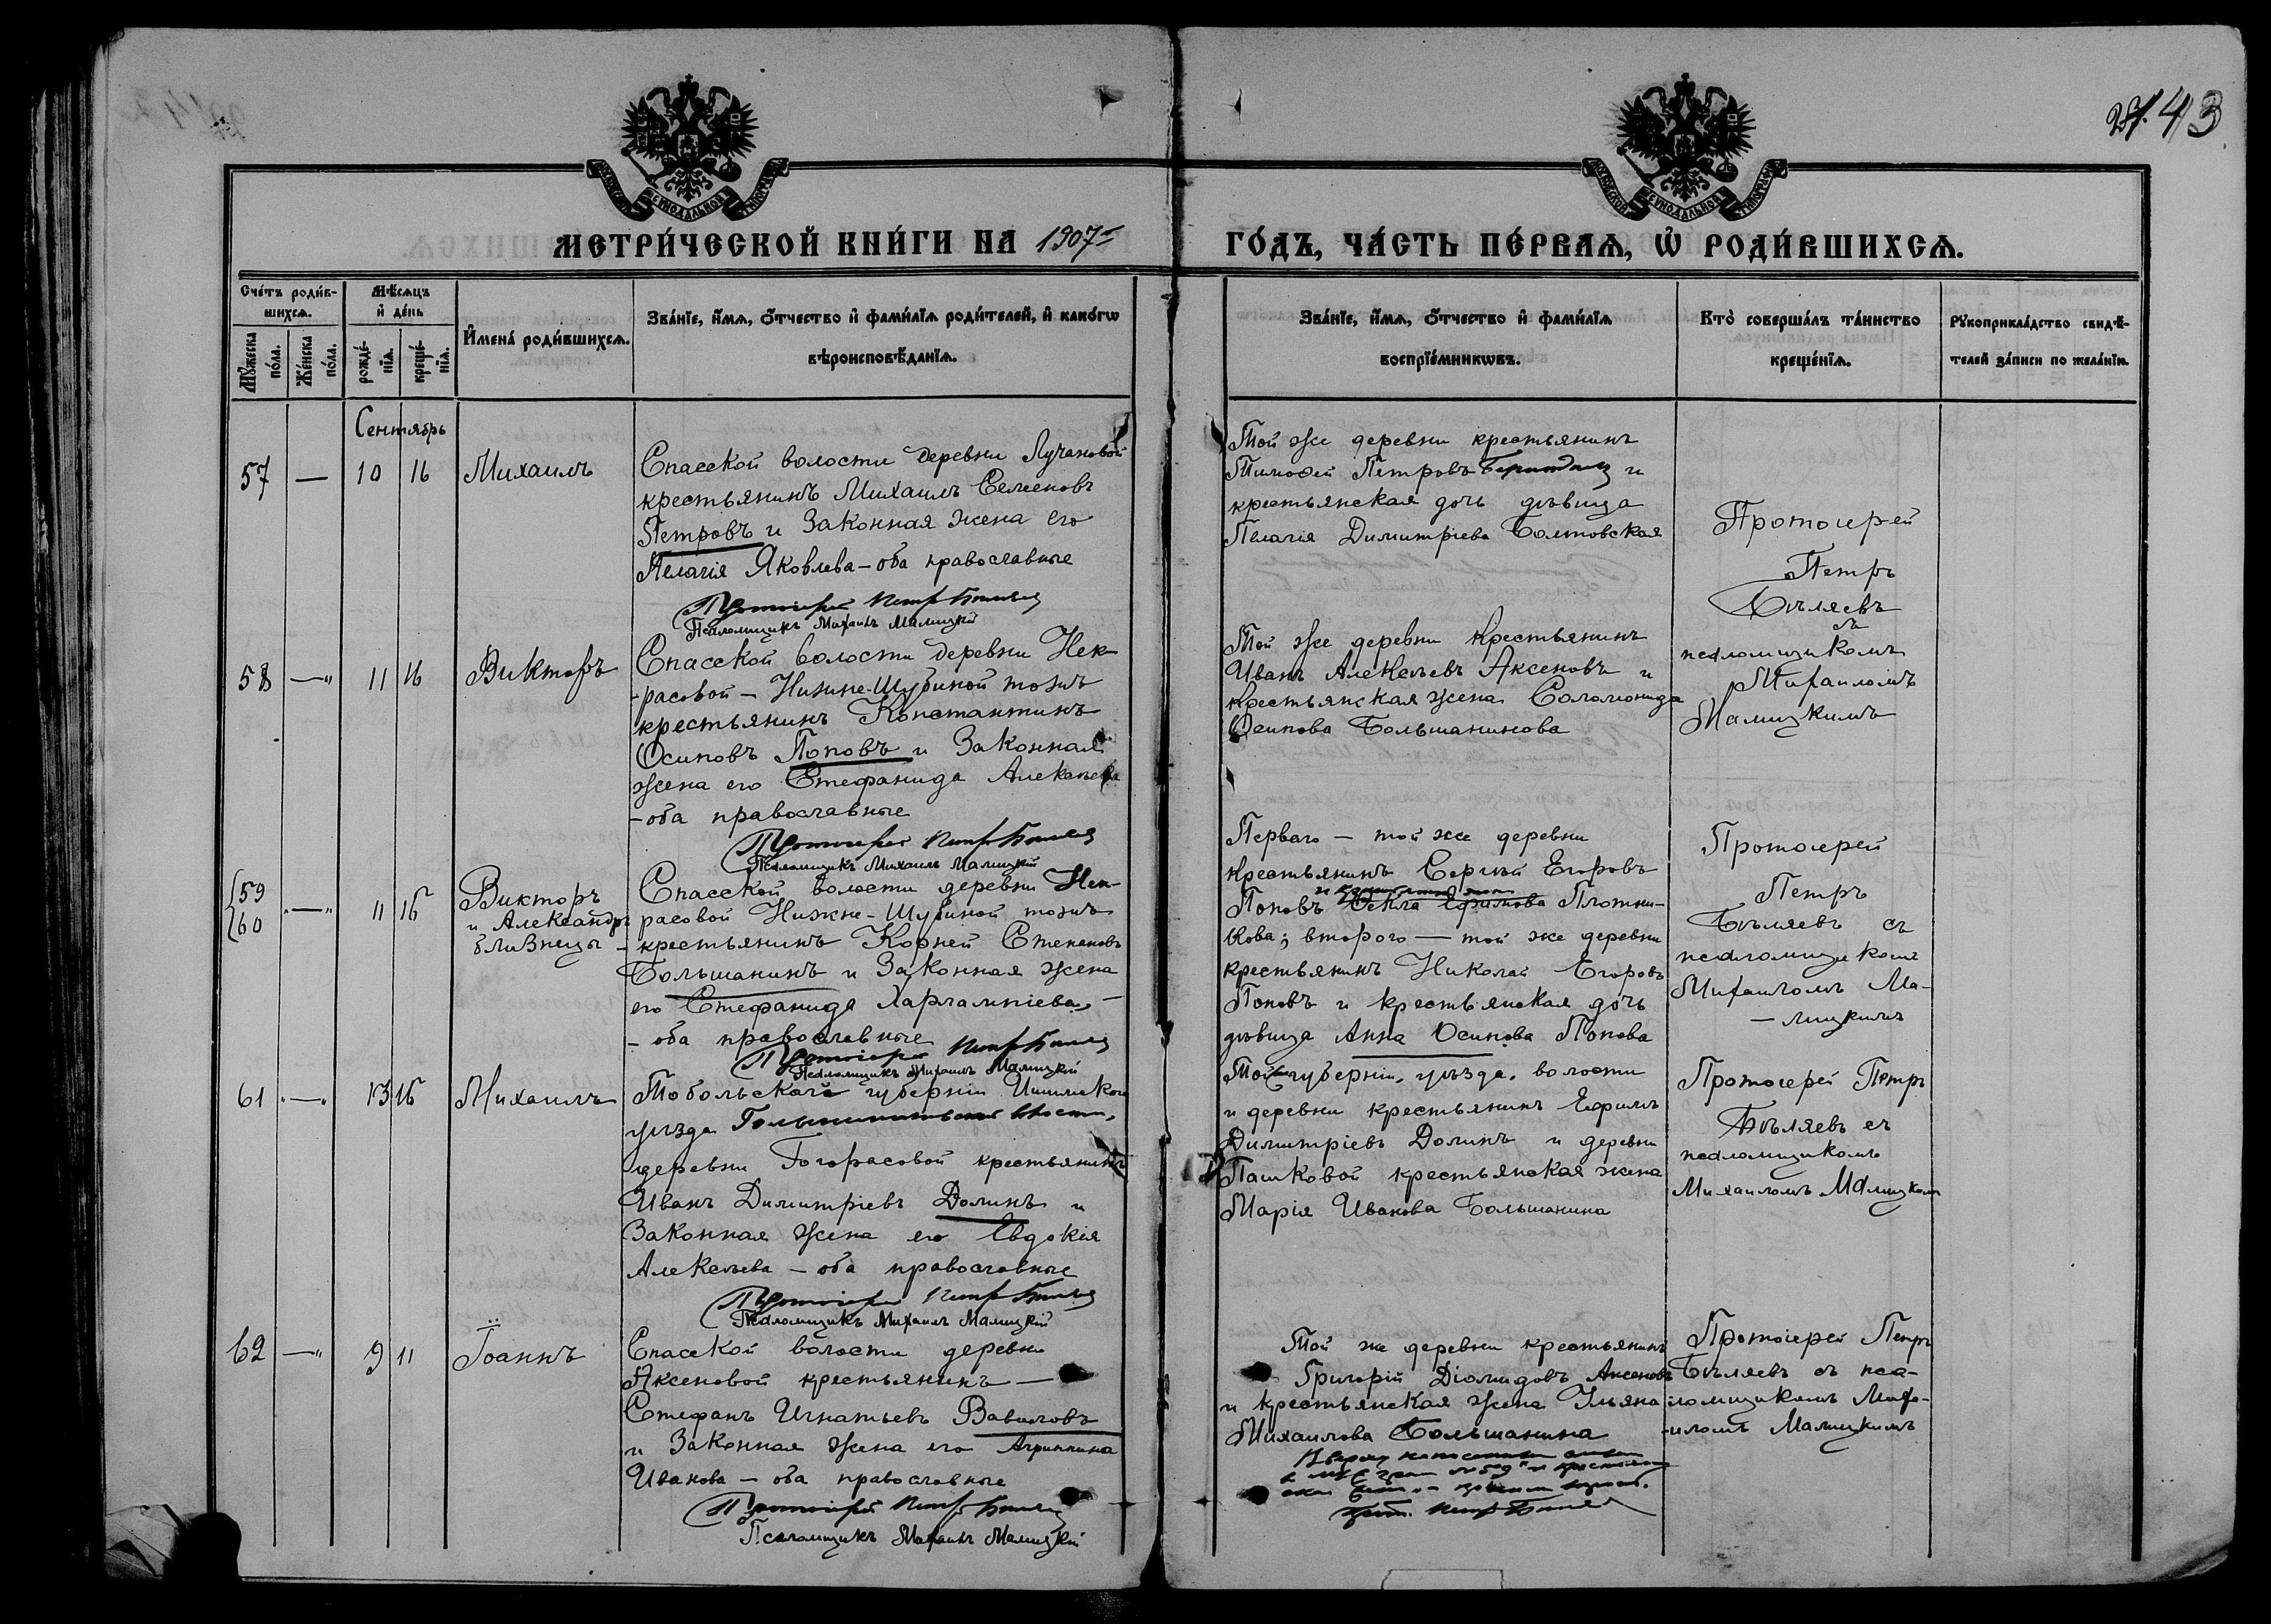 43
МОСКОВСКОЙ СѴНОДАЛЬНОЙ ТИПОГРАФІИ
МОСКОВСКОЙ СѴНОДАЛЬНОЙ ТИПОГРАФІИ
МЕТРИ́ЧЕСКОЙ КНИ́ГИ НА 1907 ГО́ДЪ, ЧА́СТЬ ПЕ́РВАѦ, Ѡ҆ РОДИ́ВШИХСѦ.
Сче́тъ роди́вшихсѧ.
Мꙋ́жеска по́ла.
Же́нска по́ла.
Мѣ́сѧцъ и҆ де́нь
рожде́нїѧ.
креще́нїѧ.
И҆мена̀ роди́вшихсѧ.
Зва́нїе, и҆́мѧ, ѻ҆́тчество и҆ фами́лїѧ роди́телей, и҆ како́гѡ
вѣроисповѣ́данїѧ.
Зва́нїе, и҆́мѧ, ѻ҆́тчество и҆ фами́лїѧ
воспрїе́мникѡвъ.
Кто̀ соверша́лъ та́инство
креще́нїѧ.
Рꙋкоприкла́дство свидѣ́-
телей за́писи по жела́нїю.
Сентябрь
57 — 10 16 Михаилъ
Спасской волости деревни Лучановой
крестьянинъ Михаилъ Семеновъ
Петровъ и законная жена его
Пелагія Яковлева – оба православные
Протоіерей Петръ Бѣляевъ
Псаломщикъ Михаилъ Малицкій
Той же деревни крестьянинъ
Тимофей Петровъ и
крестьянская дочь дѣвица
Пелагія Димитріева Болтовская
Протоіерей
Петръ
Бѣляевъ
съ
псаломщикомъ
Михаиломъ
Малицкимъ
58 —" 11 16 Викторъ
Спасской волости деревни Нек-
-расовой – Нижне-Шубиной тожъ
крестьянинъ Константинъ
Осиповъ Поповъ и законная
жена его Стефанида Алексѣева
– оба православные
Протоіерей Петръ Бѣляевъ
Псаломщикъ Михаилъ Малицкій
Той же деревни крестьянинъ
Иванъ Алексѣевъ Аксеновъ и
крестьянская жена Соломонида
Осипова Большанинова
59
60 "—" 11 16 Викторъ
и Александръ
близнецы
Спасской волости деревни Нек-
расовой Нижне-Шубиной тожъ
– крестьянинъ Корней Степановъ
Большанинъ и законная жена
его Стефанида Харлампіева, –
– оба православные
Протоіерей Петръ Бѣляевъ
Псаломщикъ Михаилъ Малицкій
Перваго – той же деревни
крестьянинъ Сергѣй Егоровъ
Поповъ Ѳекла Ефимова Плотни-
кова; второго – той же деревни
крестьянинъ Николай Егоровъ
Поповъ и крестьянская дочь
дѣвица Анна Осипова Попова
Протоіерей
Петръ
Бѣляевъ съ
псаломщикомъ
Михаиломъ Ма-
– лицкимъ
61 "—" 13 16 Михаилъ
Тобольской губерніи Ишимскаго
уѣзда волости,
деревни крестьянинъ
Иванъ Димитріевъ Долинъ и
законная жена его Евдокія
Алексѣева – оба православные
Протоіерей Петръ Бѣляевъ
Псаломщикъ Михаилъ Малицкій
Той же губерніи, уѣзда, волости
и деревни крестьянинъ Ефимъ
Димитріевъ Долинъ и деревни
Пашковой крестьянская жена
Марія Иванова Большанина
Протоіерей Петръ
Бѣляевъ съ
псаломщикомъ
Михаиломъ Малицкимъ
62 —" 9 11 Іоаннъ
Спасской волости деревни
Аксеновой крестьянинъ –
Стефанъ Игнатьевъ Вавиловъ
и законная жена его Агриппина
Иванова – оба православные
Протоіерей Петръ Бѣляевъ
Псаломщикъ Михаилъ Малицкій
Той же деревни крестьянинъ
Григорій Діомидовъ Аксеновъ
и крестьянская жена Ульяна
Михаилова Большанина
прот. Петръ Бѣляевъ
Протоіерей Петръ
Бѣляевъ съ пса-
ломщикомъ Миха-
-иломъ Малицкимъ